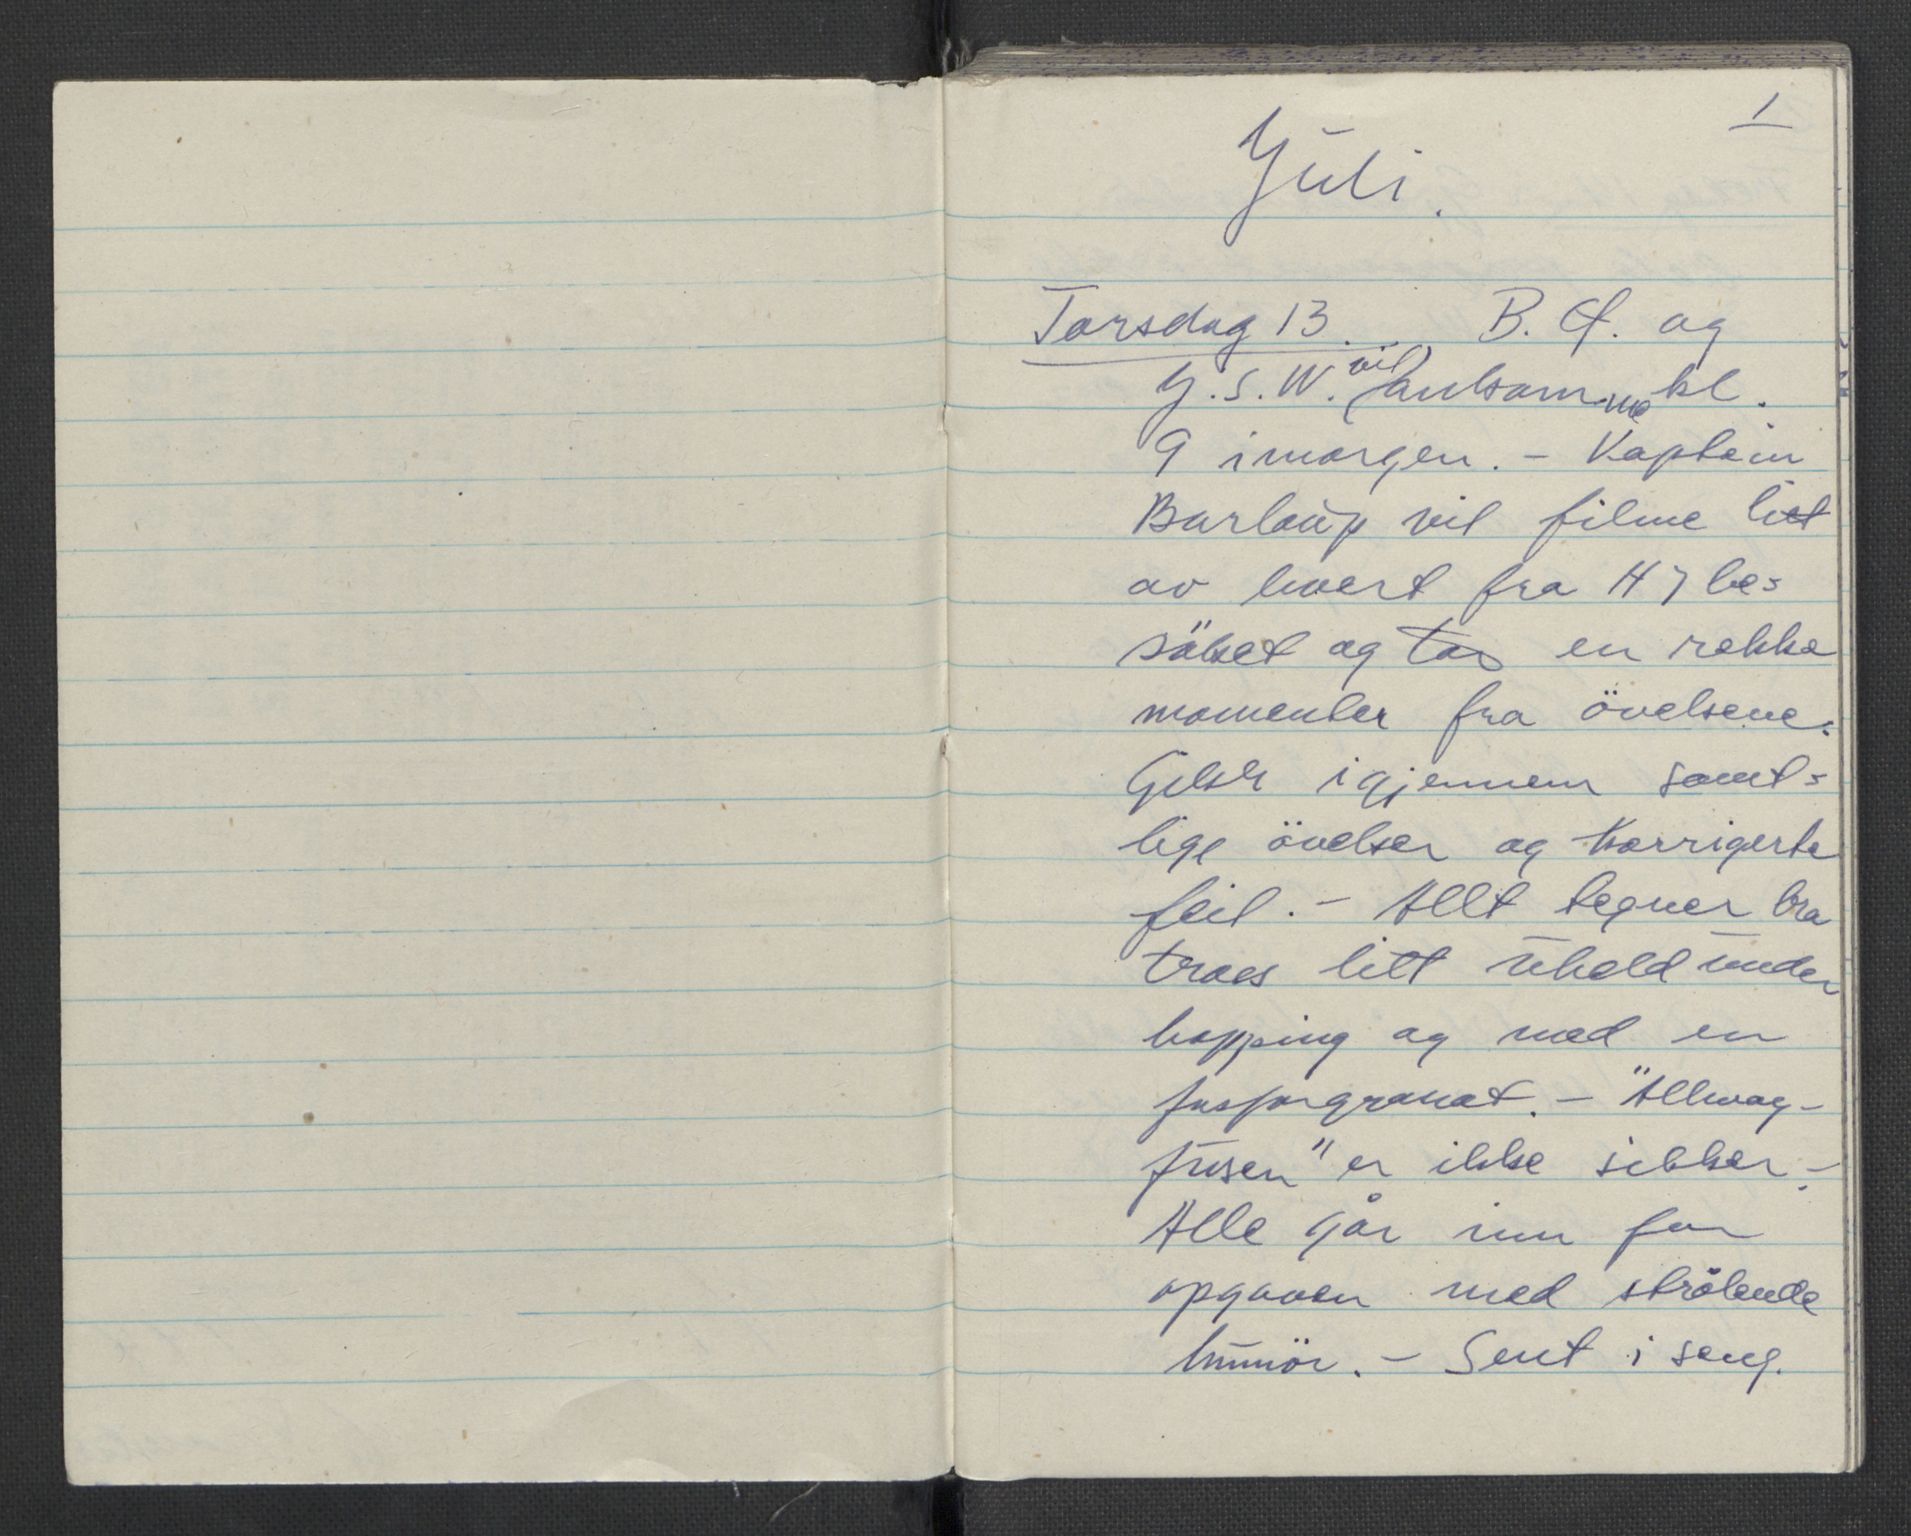 1
Juli.
Torsdag 13. B. Ø. og
J. S. W. vil ankomme kl.
9 imorgen. - Kaptein
Burloup vil filme litt
av hvert fra H7 be=
söket og tas en rekke
momenter fra övelsene.
Gikk igjennem samt=
lige övelser og korrigerte
feil. - Allt tegner bra
tross litt uheld under
hopping og med en
fosforgranat. - "Allway-
fusen" er ikke sikker. -
Alle går inn for
opgaven med strålende
humör. - Sent i seng.